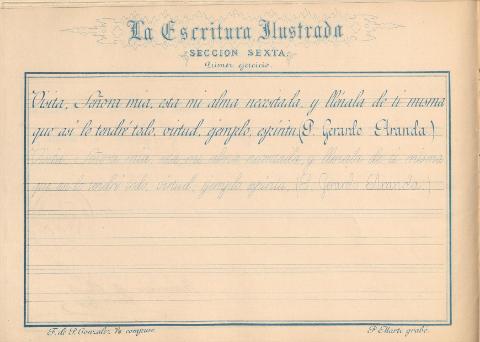 La Escritura Ilustrada
SECCION SEXTA.
Primer ejercicio.
Visita, Señora mia, esta mi alma necesitada, y llénala de ti misma
que así lo tendré todo, virtud, ejemplo, espíritu, (P. Gerardo Aranda.)
Visita, Señora mia, esta mi alma necesitada, y llénala de ti misma
que así lo tendré todo, virtud, ejemplo, espíritu, (P. Gerardo Aranda.)
F. de P. Gonzalez lo compuso.
P. Ellarte grabó.